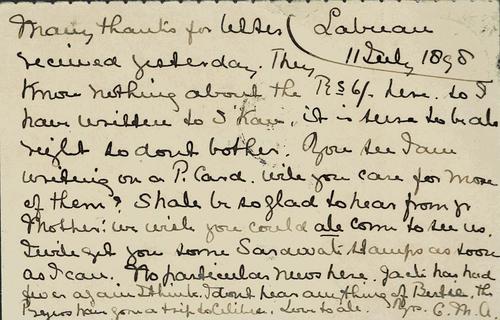 Many thanks for letter Labuan
received yesterday. They 11 July 1898
know nothing about the R 6/. here. so I
have written to S'Kan. it is sure to be all
right so dont bother. You see I am
writing on a P. Card. will you care for more
of them? Shall be so glad to hear from yr
Mother: we wish you could all come to see us.
I will get you some Sarawak stamps as soon
as I can. No particular news here. Jack has had
fever again I think. I dont hear anything of Bertie. the
have gone a trip to Celibes. Love to all. Yrs. C. M. A